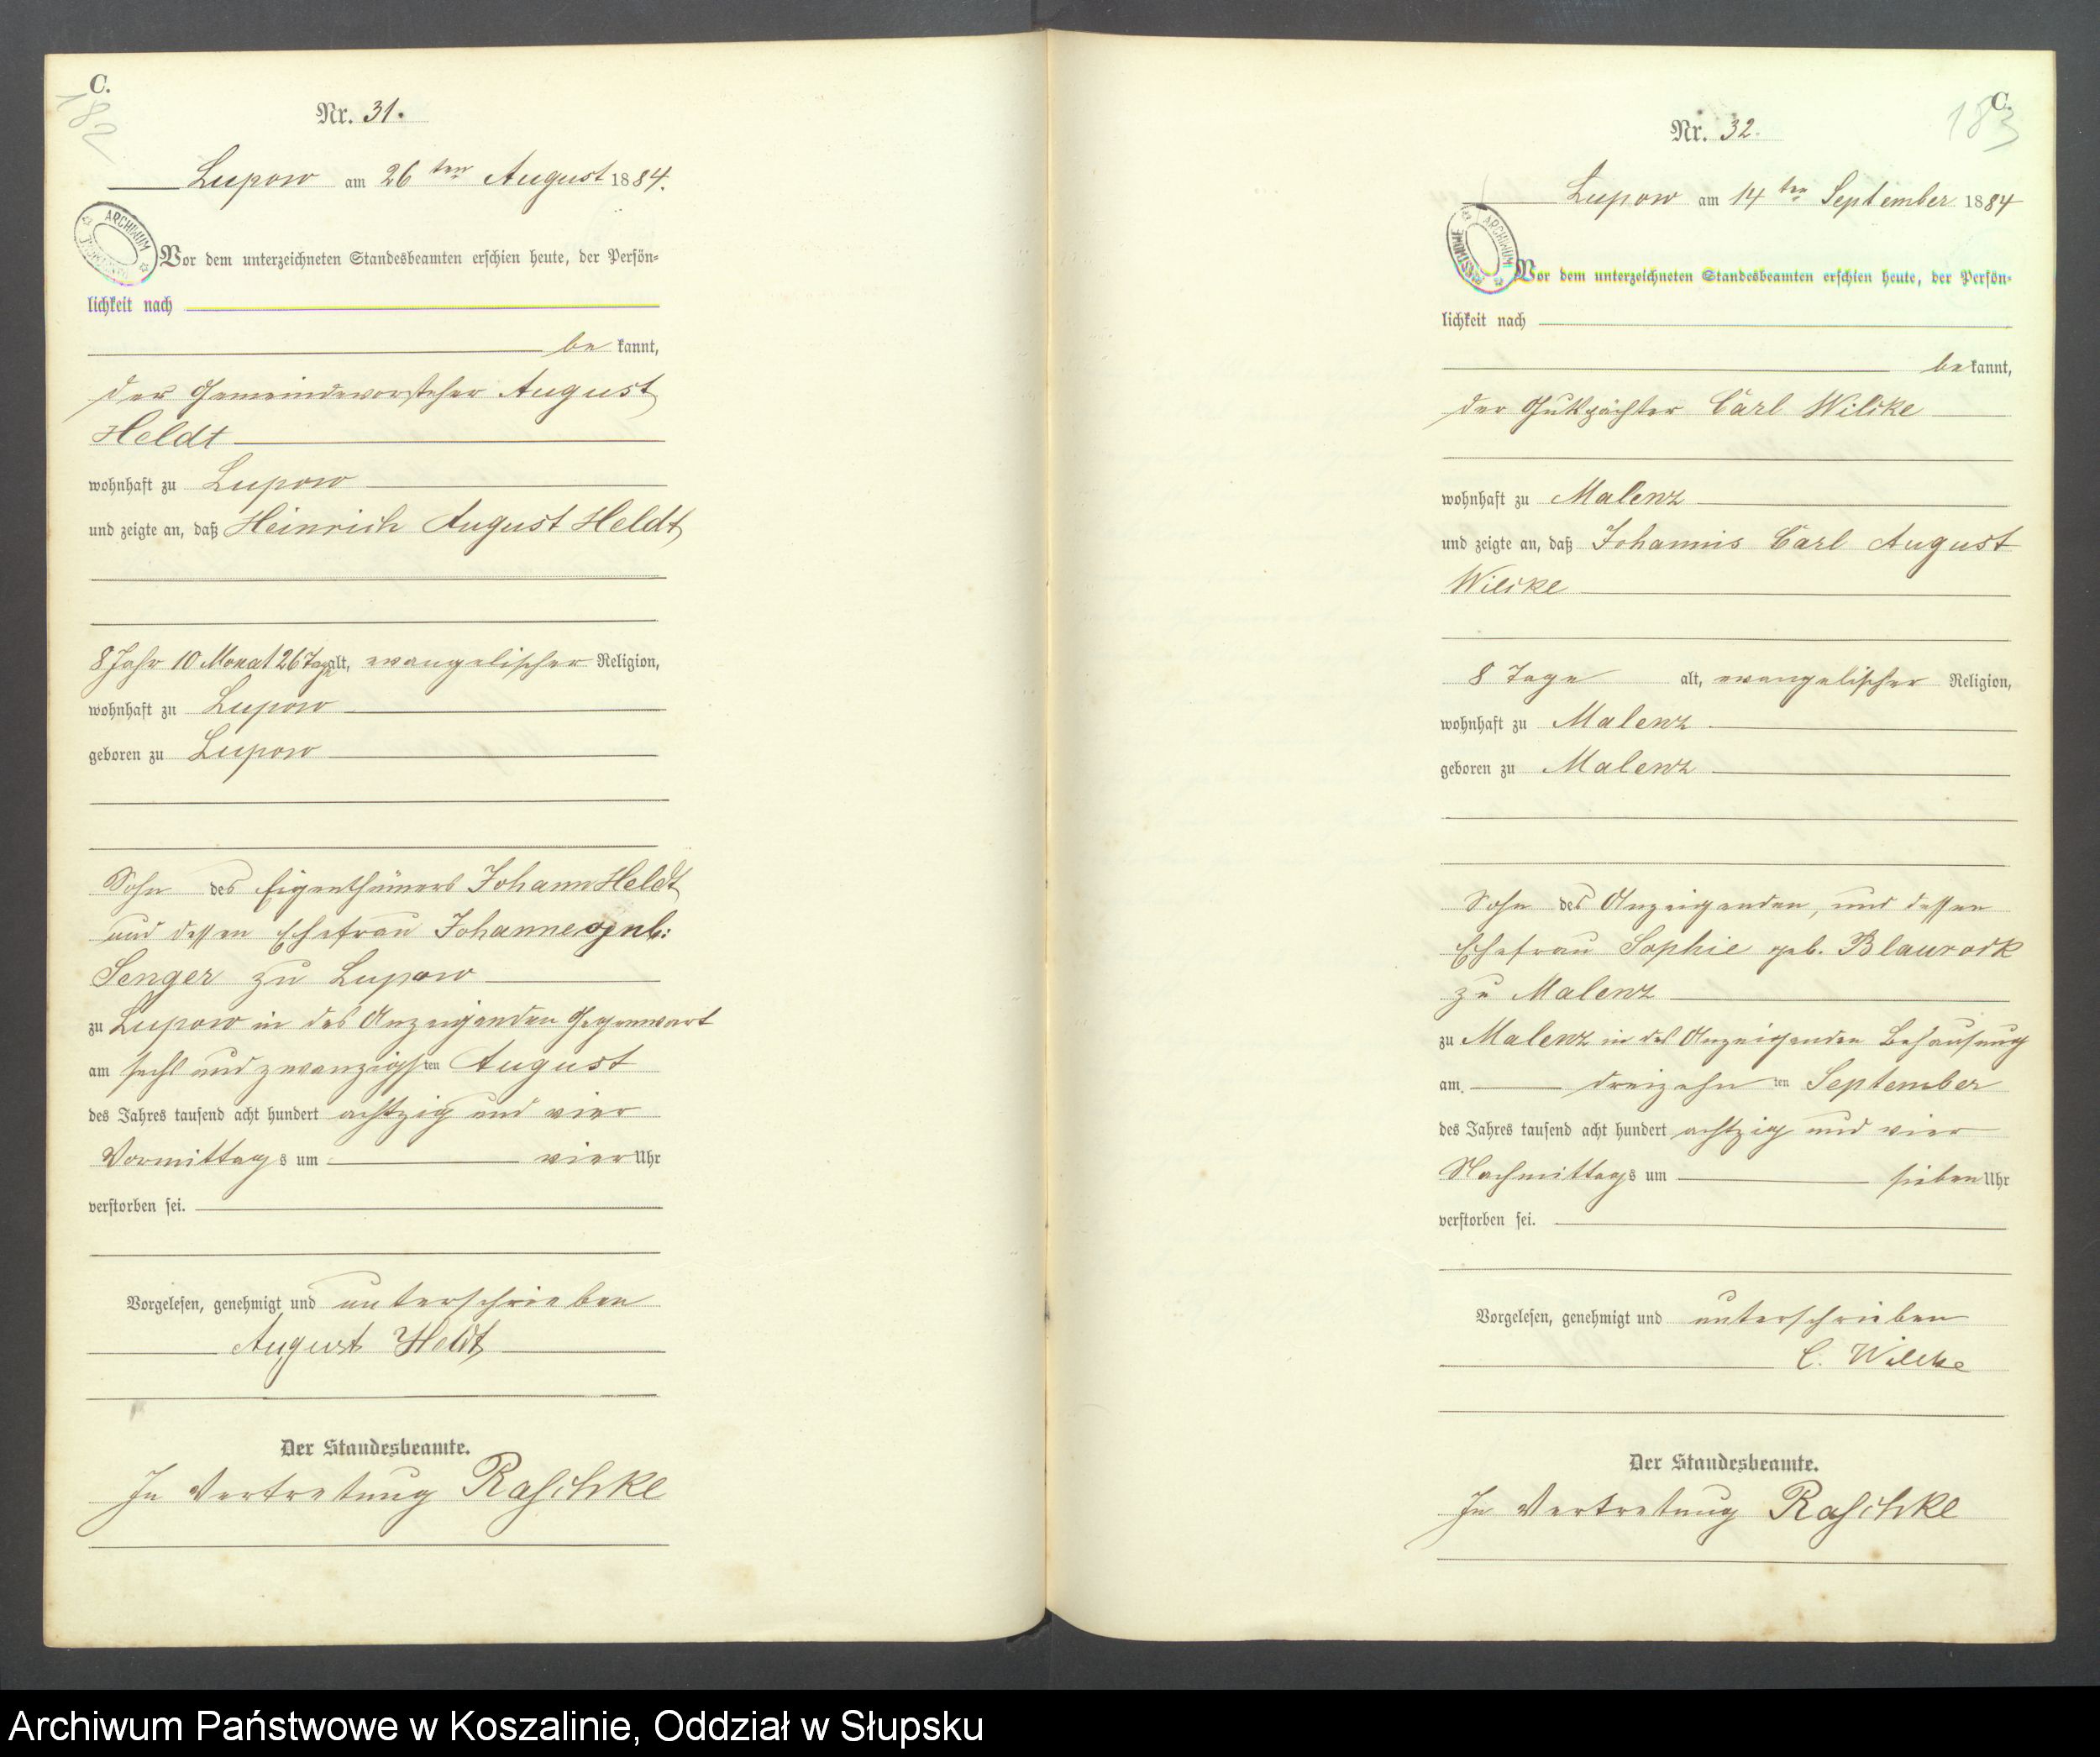 C.
182
Nr. 31.
Lupow am 26 ten August 1884.
ARCHIWUM
Vor dem unterzeichneten Standesbeamten erschien heute, der Persön-
lichkeit nach
be kannt,
der Gemeindevorsteher August
Heldt
wohnhaft zu Lupow
und zeigte an, daß Heinrich August Heldt
8 Jahr 10 Monat 26 Tage alt, evangelischer Religion,
wohnhaft zu Lupow
geboren zu Lupow
Sohn des Eigenthümers Johann Heldt
und dessen Ehefrau Johanne geb:
Senger zu Lupow
zu Lupow in des Anzeigenden Gegenwart
am sechs und zwanzigsten August
des Jahres tausend acht hundert achtzig und vier
Vormittags um vier Uhr
verstorben sei.
Vorgelesen, genehmigt und unterschrieben
August Heldt
Der Standesbeamte.
In Vertretung Raschke
C.
183
Nr. 32.
Lupow am 14 ten September 1884
ARCHIWUM PAŃSTWOWE
Vor dem unterzeichneten Standesbeamten erschien heute, der Persön-
lichkeit nach
be kannt,
der Gutspächter Carl Wilcke
wohnhaft zu Malenz
und zeigte an, daß Johannis Carl August
Wilcke
8 Tage alt, evangelischer Religion,
wohnhaft zu Malenz
geboren zu Malenz
Sohn des Anzeigenden, und dessen
Ehefrau Sophie geb. Blaurock
zu Malenz
zu Malenz in des Anzeigenden Behausung
am dreizehn ten September
des Jahres tausend acht hundert achtzig und vier
Nachmittags um sieben Uhr
verstorben sei.
Vorgelesen, genehmigt und unterschrieben
C. Wilcke
Der Standesbeamte.
In Vertretung Raschke
Archiwum Państwowe w Koszalinie, Oddział w Słupsku